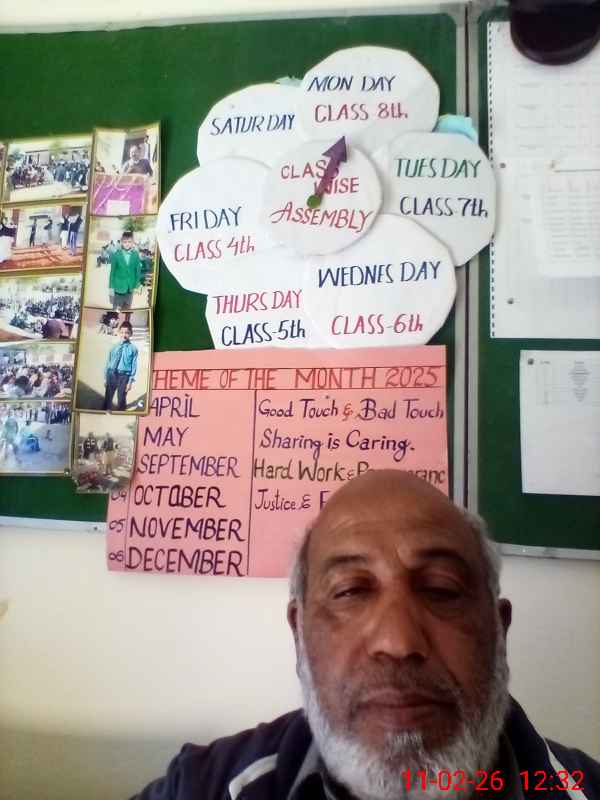 MONDAY
CLASS 8th
SATURDAY
TUESDAY
CLASS-7th
CLASS
WISE
ASSEMBLY
FRIDAY
CLASS 4th
WEDNESDAY
CLASS-6th
THURSDAY
CLASS-5th
THEME OF THE MONTH 2025
APRIL Good Touch & Bad Touch
MAY Sharing is Caring.
SEPTEMBER Hard Work &
04 OCTOBER Justice &
05 NOVEMBER
06 DECEMBER
11-02-26 12:32